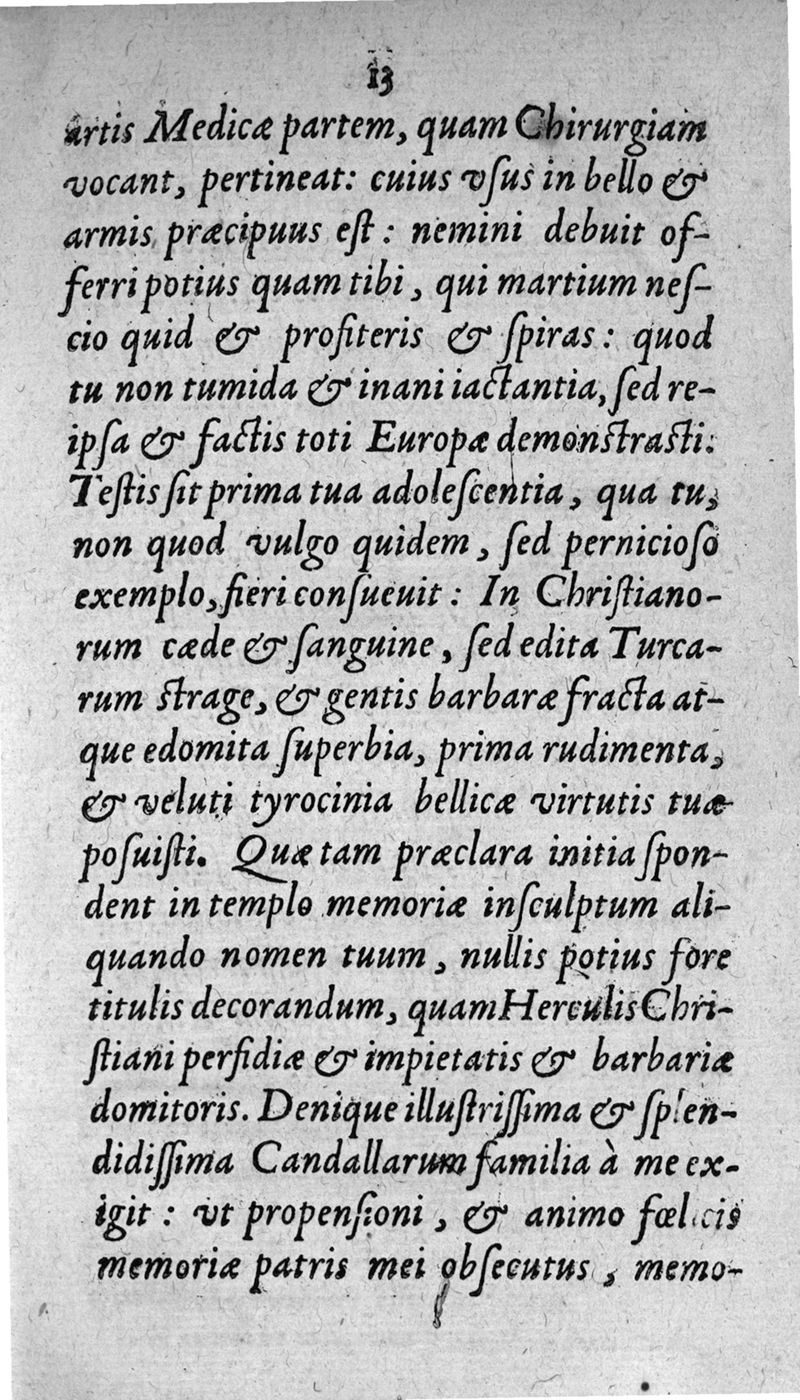 13
artis Medicæ partem, quam Chirurgiam
vocant, pertineat: cuius vſus in bello &
armis præcipuus eſt: nemini debuit of-
ferri potius quam tibi, qui martium neſ-
cio quid & profiteris & ſpiras: quod
tu non tumida & inani iactantia, ſed re-
ipſa & factis toti Europæ demonſtraſti.
Teſtis ſit prima tua adoleſcentia, qua tu,
non quod vulgo quidem, ſed pernicioſo
exemplo, fieri conſueuit: In Chriſtiano-
rum cæde & ſanguine, ſed edita Turca-
rum ſtrage, & gentis barbaræ fracta at-
que edomita ſuperbia, prima rudimenta,
& veluti tyrocinia bellicæ virtutis tuæ
poſuiſti. Quæ tam præclara initia ſpon-
dent in templo memoriæ inſculptum ali-
quando nomen tuum, nullis potius fore
titulis decorandum, quam Herculis Chri-
ſtiani perfidiæ & impietatis & barbariæ
domitoris. Denique illuſtriſſima & ſplen-
didiſſima Candallarum familia à me ex-
igit: vt propenſioni, & animo fœlicis
memoriæ patris mei obſecutus, memo-